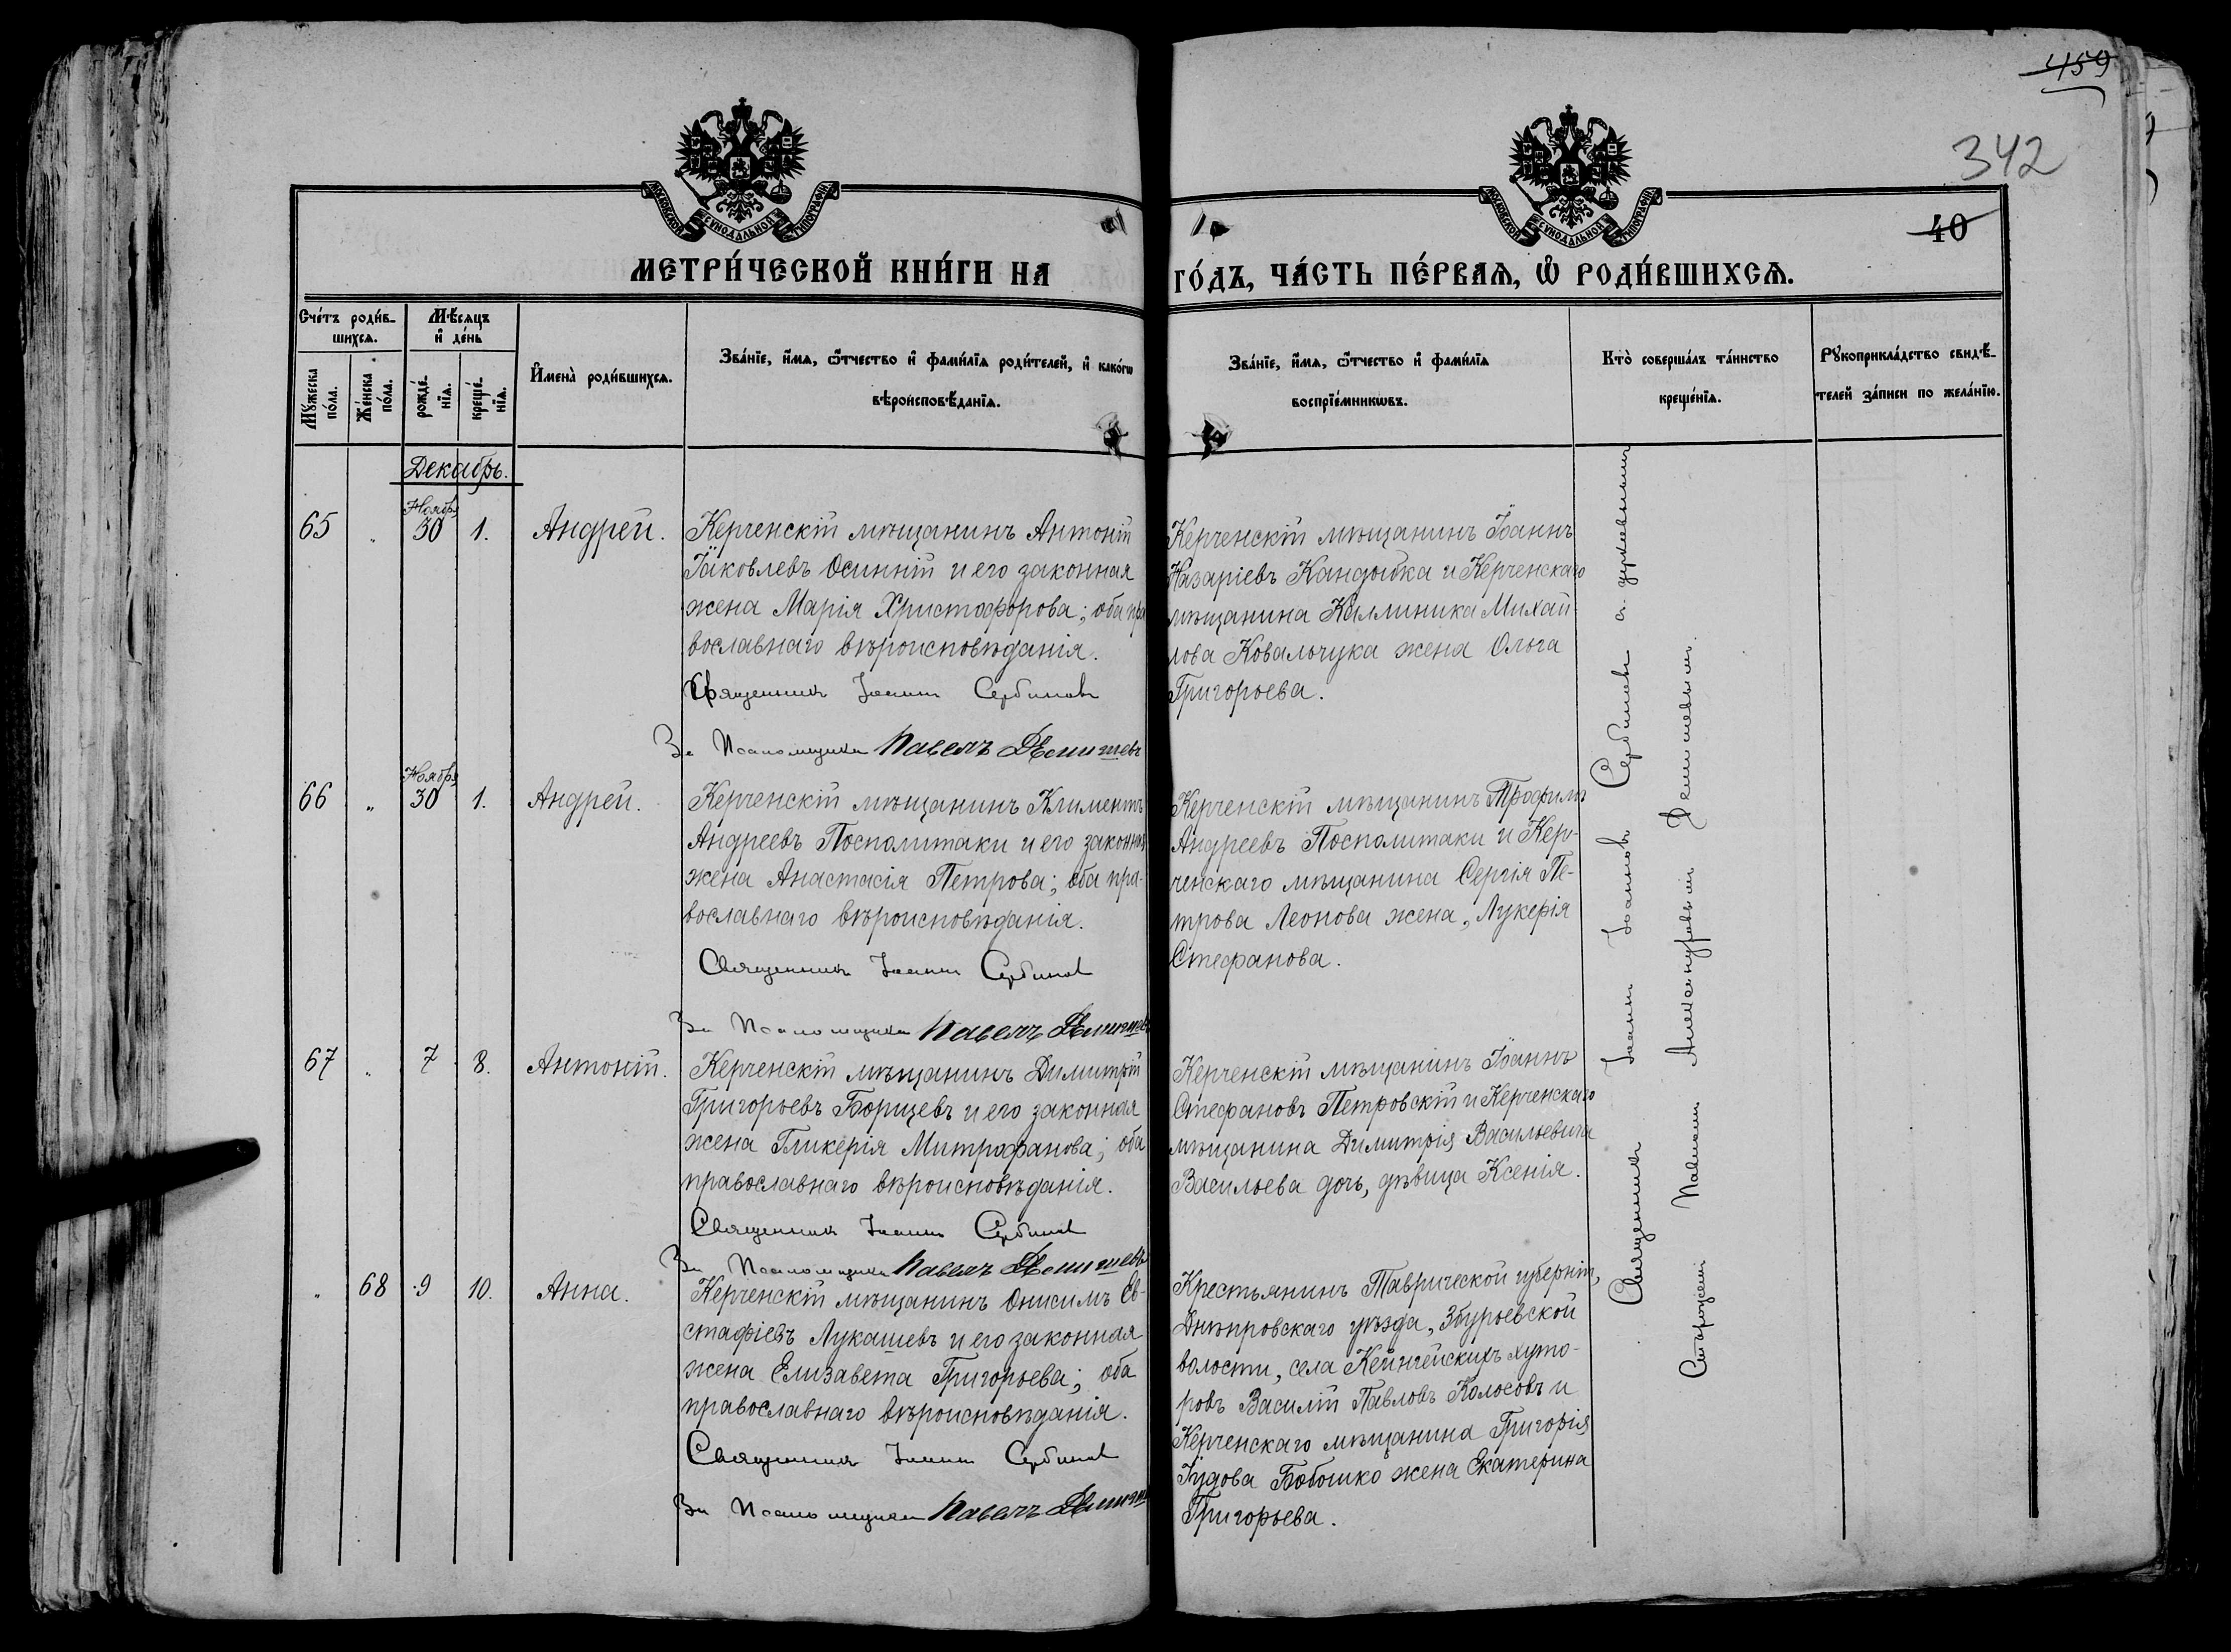 459
342
40
МОСКОВСКОЙ СѴНОДАЛЬНОЙ ТИПОГРАФІИ
МОСКОВСКОЙ СѴНОДАЛЬНОЙ ТИПОГРАФІИ
МЕТРИ́ЧЕСКОЙ КНИ́ГИ НА ГО́ДЪ, ЧА́СТЬ ПЕ́РВАѦ, Ѡ҆ РОДИ́ВШИХСѦ.
Сче́тъ роди́в-
шихсѧ.
Мꙋ́жеска
по́ла.
Же́нска
по́ла.
Мѣ́сяцъ
и҆ де́нь
рожде́-
нїѧ.
креще́-
нїѧ.
И҆мена̀ роди́вшихсѧ.
Зва́нїе, и҆́мѧ, ѻ҆́тчество и҆ фамѵ́лїѧ роди́телей, и҆ како́гѡ
вѣроисповѣ́данїѧ.
Зва́нїе, и҆́мѧ, ѻ҆́тчество и҆ фамѵ́лїѧ
воспрїе́мникѡвъ.
Кто̀ соверша́лъ та́инство
креще́нїѧ.
Рꙋкоприкла́дство свидѣ́-
телей за́писи по жела́нїю.
Декабрь.
65 " Ноября 30 1. Андрей.
Керченскій мѣщанинъ Антоній
Іаковлевъ Осинній и его законная
жена Марія Христофорова; оба пра
вославнаго вѣроисповѣданія.
Священникъ Іоаннъ Сербиновъ
За Псаломщика Павелъ
Керченскій мѣщанинъ Іоаннъ
Назаріевъ Кандыбка и Керченскаго
мѣщанина Каллиника Михай-
лова Ковальчука жена Ольга
Григорьева.
66 " Ноября 30 1. Андрей.
Керченскій мѣщанинъ Климентъ
Андреевъ Посполитаки и его законная
жена Анастасія Петрова; оба пра-
вославнаго вѣроисповѣданія.
Священникъ Іоаннъ Сербиновъ
За Псаломщика Павелъ
Керченскій мѣщанинъ Трофимъ
Андреевъ Посполитаки и Кер-
ченскаго мѣщанина Сергія Пе-
трова Леонова жена, Лукерія
Стефанова.
67 " 7 8. Антоній.
Керченскій мѣщанинъ Димитрій
Григорьевъ Борщевъ и его законная
жена Гликерія Митрофанова; оба
православнаго вѣроисповѣданія.
Священникъ Іоаннъ Сербиновъ
За Псаломщика Павелъ
Керченскій мѣщанинъ Іоаннъ
Стефановъ Петровскій и Керченскаго
мѣщанина Димитрія Васильевича
Васильева дочь, дѣвица Ксенія.
" 68 9 10. Анна.
Керченскій мѣщанинъ Онисимъ Ев-
стафіевъ Лукашевъ и его законная
жена Елизавета Григорьева; оба
православнаго вѣроисповѣданія.
Священникъ Іоаннъ Сербиновъ
За Псаломщика Павелъ
Крестьянинъ Таврической губерніи,
Днѣпровскаго уѣзда, Збурьевской
волости, села Кейнгейскихъ хуто-
ровъ Василій Павловъ Колосовъ и
Керченскаго мѣщанина Григорія
Іудова Бобошко жена Екатерина
Григорьева.
Священникъ Іоаннъ Іоанновъ Сербиновъ съ
Павломъ Александровымъ